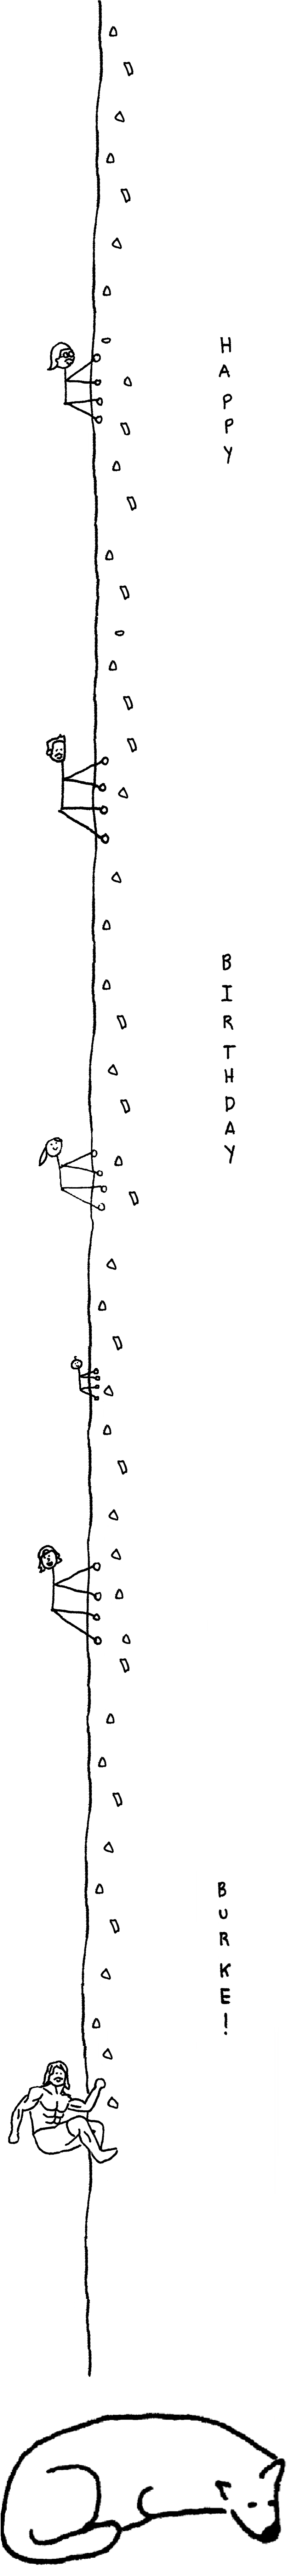 HAPPY
BIRTHDAY
BURKE!